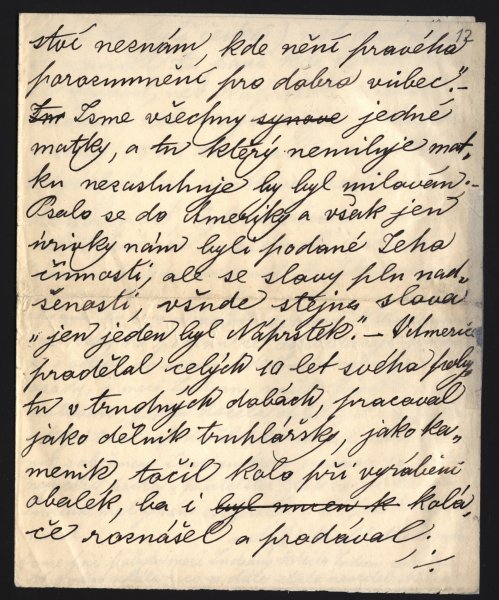 12
ství neznám, kde není pravého
porozumnění pro dobro vůbec."-
Jsme všechny synové jedné
matky, a tu který nemiluje mat-
ku nezasluhuje by byl milován.-
Psalo se do Ameriky a však jen
úrivky nám byli podané Jeho
činnosti, ale se slovy pln nad-
šenosti, všude stejna slova
„jen jeden byl Náprstek."- V Americe
prodělal celých 10 let svého poby-
tu v trudných dobách, pracoval
jako dělník truhlářsky, jako ka-
meník, točil kolo při vyrábění
obalék, ba i byl nucen k kolá-
če roznášel a prodával;